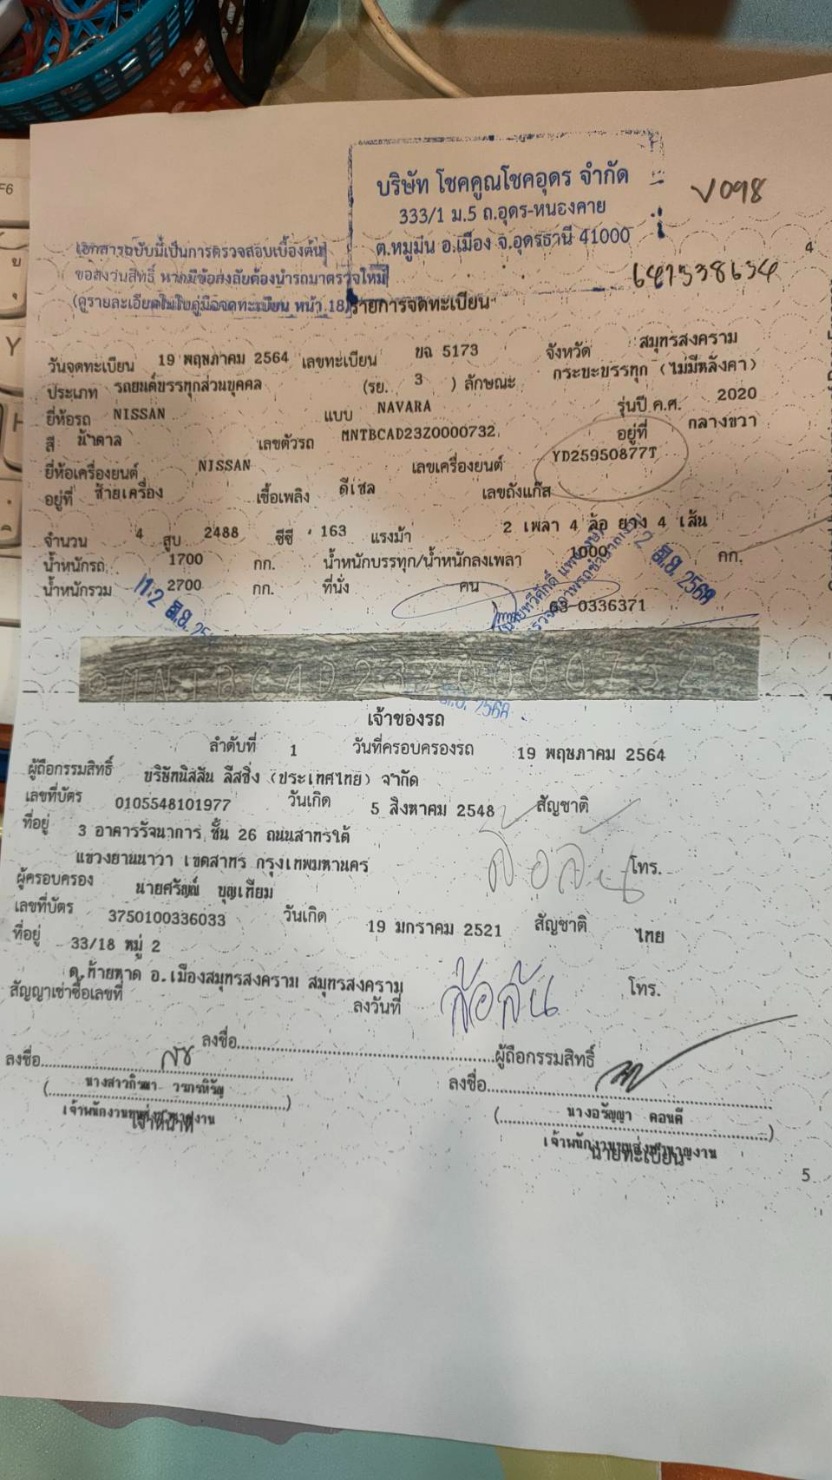 บริษัท โชคคูณโชคอุดร จำกัด
333/1 ม.5 ถ.อุดร-หนองคาย
ต.หมูม่น อ.เมือง จ.อุดรธานี 41000
V098
641538634
4
เอกสารฉบับนี้เป็นการตรวจสอบเบื้องต้น
ขอสงวนสิทธิ์ หากมีข้อสงสัยต้องนำรถมาตรวจใหม่
(ดูรายละเอียดในใบคู่มือจดทะเบียน หน้า 18)
รายการจดทะเบียน
วันจดทะเบียน 19 พฤษภาคม 2564 เลขทะเบียน ขฉ 5173 จังหวัด สมุทรสงคราม
ประเภท รถยนต์บรรทุกส่วนบุคคล (รย. 3 ) ลักษณะ กระบะบรรทุก (ไม่มีหลังคา)
ยี่ห้อรถ NISSAN แบบ NAVARA รุ่นปี ค.ศ. 2020
สี น้ำตาล เลขตัวรถ MNTBCAD23Z0000732 อยู่ที่ กลางขวา
ยี่ห้อเครื่องยนต์ NISSAN เลขเครื่องยนต์ YD25950877T
อยู่ที่ ซ้ายเครื่อง เชื้อเพลิง ดีเซล เลขถังแก๊ส
จำนวน 4 สูบ 2488 ซีซี 163 แรงม้า 2 เพลา 4 ล้อ ยาง 4 เส้น
น้ำหนักรถ 1700 กก. น้ำหนักบรรทุก/น้ำหนักลงเพลา 1000 กก.
น้ำหนักรวม 2700 กก. ที่นั่ง คน
63-0336371
เจ้าของรถ
ลำดับที่ 1 วันที่ครอบครองรถ 19 พฤษภาคม 2564
ผู้ถือกรรมสิทธิ์ บริษัทนิสสัน ลีสซิ่ง (ประเทศไทย) จำกัด
เลขที่บัตร 0105548101977 วันเกิด 5 สิงหาคม 2548 สัญชาติ
ที่อยู่ 3 อาคารรัจนาการ ชั้น 26 ถนนสาทรใต้
แขวงยานนาวา เขตสาทร กรุงเทพมหานคร โทร.
ผู้ครอบครอง นายศรัณย์ บุญเทียม
เลขที่บัตร 3750100336033 วันเกิด 19 มกราคม 2521 สัญชาติ ไทย
ที่อยู่ 33/18 หมู่ 2
ต.ท้ายหาด อ.เมืองสมุทรสงคราม สมุทรสงคราม โทร.
สัญญาเช่าซื้อเลขที่ ลงวันที่
ลงชื่อ ผู้ถือกรรมสิทธิ์
ลงชื่อ ลงชื่อ
( ) (นางอรัญญา )
เจ้าหน้าที่ นายทะเบียน
5